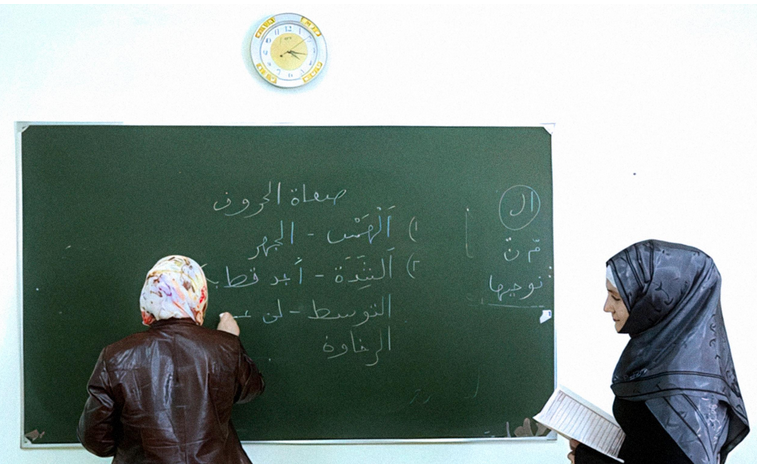 صفاة الحروف
١) اَلْهَمْس - الجهر
٢) اَلشِّدَّة - أجد قط
التوسط - لن عـ
الرخاوة
ال
مّ نّ